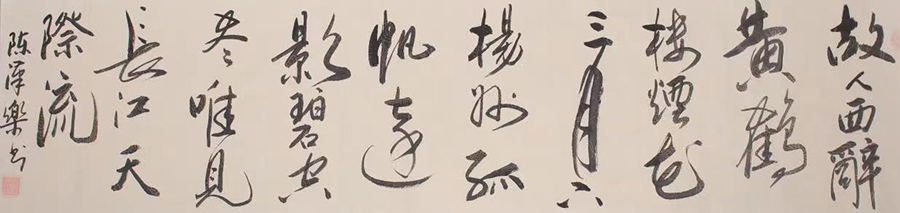 故人西辭
黄鶴
樓煙花
三月下
楊州孤
帆遠
影碧空
尽唯見
長江天
際流
陈漢樂书